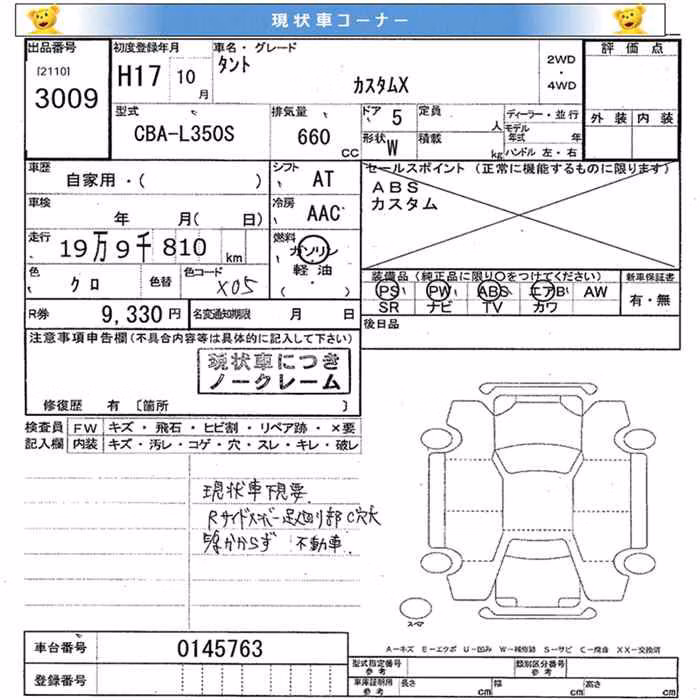 現状車コーナー
出品番号 初度登録年月 車名・グレード 評価点
[2110] H17 10月 タント 2WD
・
3009 カスタムX 4WD
型式 排気量 ドア 5 定員 人 ディーラー・並行 外装 内装
CBA-L350S 660 CC 形状 W 積載 kg モデル年式 年
ハンドル 左・右
車歴 シフト セールスポイント (正常に機能するものに限ります)
自家用・( ) AT ABS
車検 冷房 カスタム
年 月( 日) AAC
走行 燃料
19万9千810 km ガソリン
軽油
・( )
色 色替 色コード 装備品 (純正品に限り○をつけてください) 新車保証書
クロ X05 PS PW ABS エアB AW 有・無
SR ナビ TV カワ
R券 9,330円 名変通知期限 月 日 後日品
注意事項申告欄(不具合内容等は具体的に記入して下さい)
現状車につき
ノークレーム
修復歴 有 〔箇所 〕
検査員 FW キズ・飛石・ヒビ割・リペア跡・×要
記入欄 内装 キズ・汚レ・コゲ・穴・スレ・キレ・破レ
現状車下見要
Rサイドステッパー足廻り部C穴大
不動車
スペア
車台番号 0145763
A−キズ E−エクボ U−凹み W−補修跡 S−サビ C−腐食 XX−交換済
登録番号 型式指定番号 参考 類別区分番号 参考
車庫証明用 参考 長さ cm 幅 cm 高さ cm